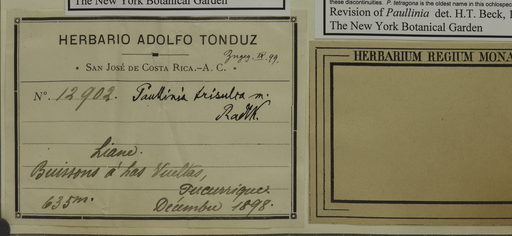 The New York Botanical Garden
these discontinuities. P. tetragona is the oldest name in this ochlospec
Revision of Paullinia det. H.T. Beck,
The New York Botanical Garden
HERBARIO ADOLFO TONDUZ
SAN JOSÉ DE COSTA RICA.–A. C.
No. 12902. Paullinia trisulca m.
Radlk.
Liane.
Buissons á las Vueltas,
Tucurrique.
635m. Décembre 1898.
HERBARIUM REGIUM MONA